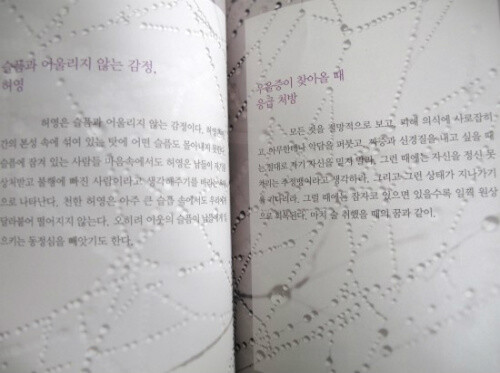 슬픔과 어울리지 않는 감정,
허영
허영은 슬픔과 어울리지 않는 감정이다. 허영은
간의 본성 속에 섞여 있는 탓에 어떤 슬픔도 몰아내지 못한다.
슬픔에 잠겨 있는 사람들 마음속에서도 허영은 남들이 자기를
상처받고 불행에 빠진 사람이라고 생각해주기를 바라는
으로 나타난다. 천한 허영은 아주 큰 슬픔 속에서도 우리에게
달라붙어 떨어지지 않는다. 오히려 이웃의 슬픔이 남들에게 일
으키는 동정심을 빼앗기도 한다.
우울증이 찾아올 때
응급 처방
모든 것을 절망적으로 보고, 의식에 사로잡히
고, 악담을 퍼붓고, 짜증과 신경질을 내고 싶을 때
는 절대로 자기 자신을 믿지 말라. 그런 때에는 자신을 정신 못
차리는 주정뱅이라고 생각하라. 그리고 그런 상태가 지나가기
를 기다리라. 그럴 때에는 잠자코 있으면 있을수록 일찍 원상
으로 회복된다. 마치 술 취했을 때의 꿈과 같이.